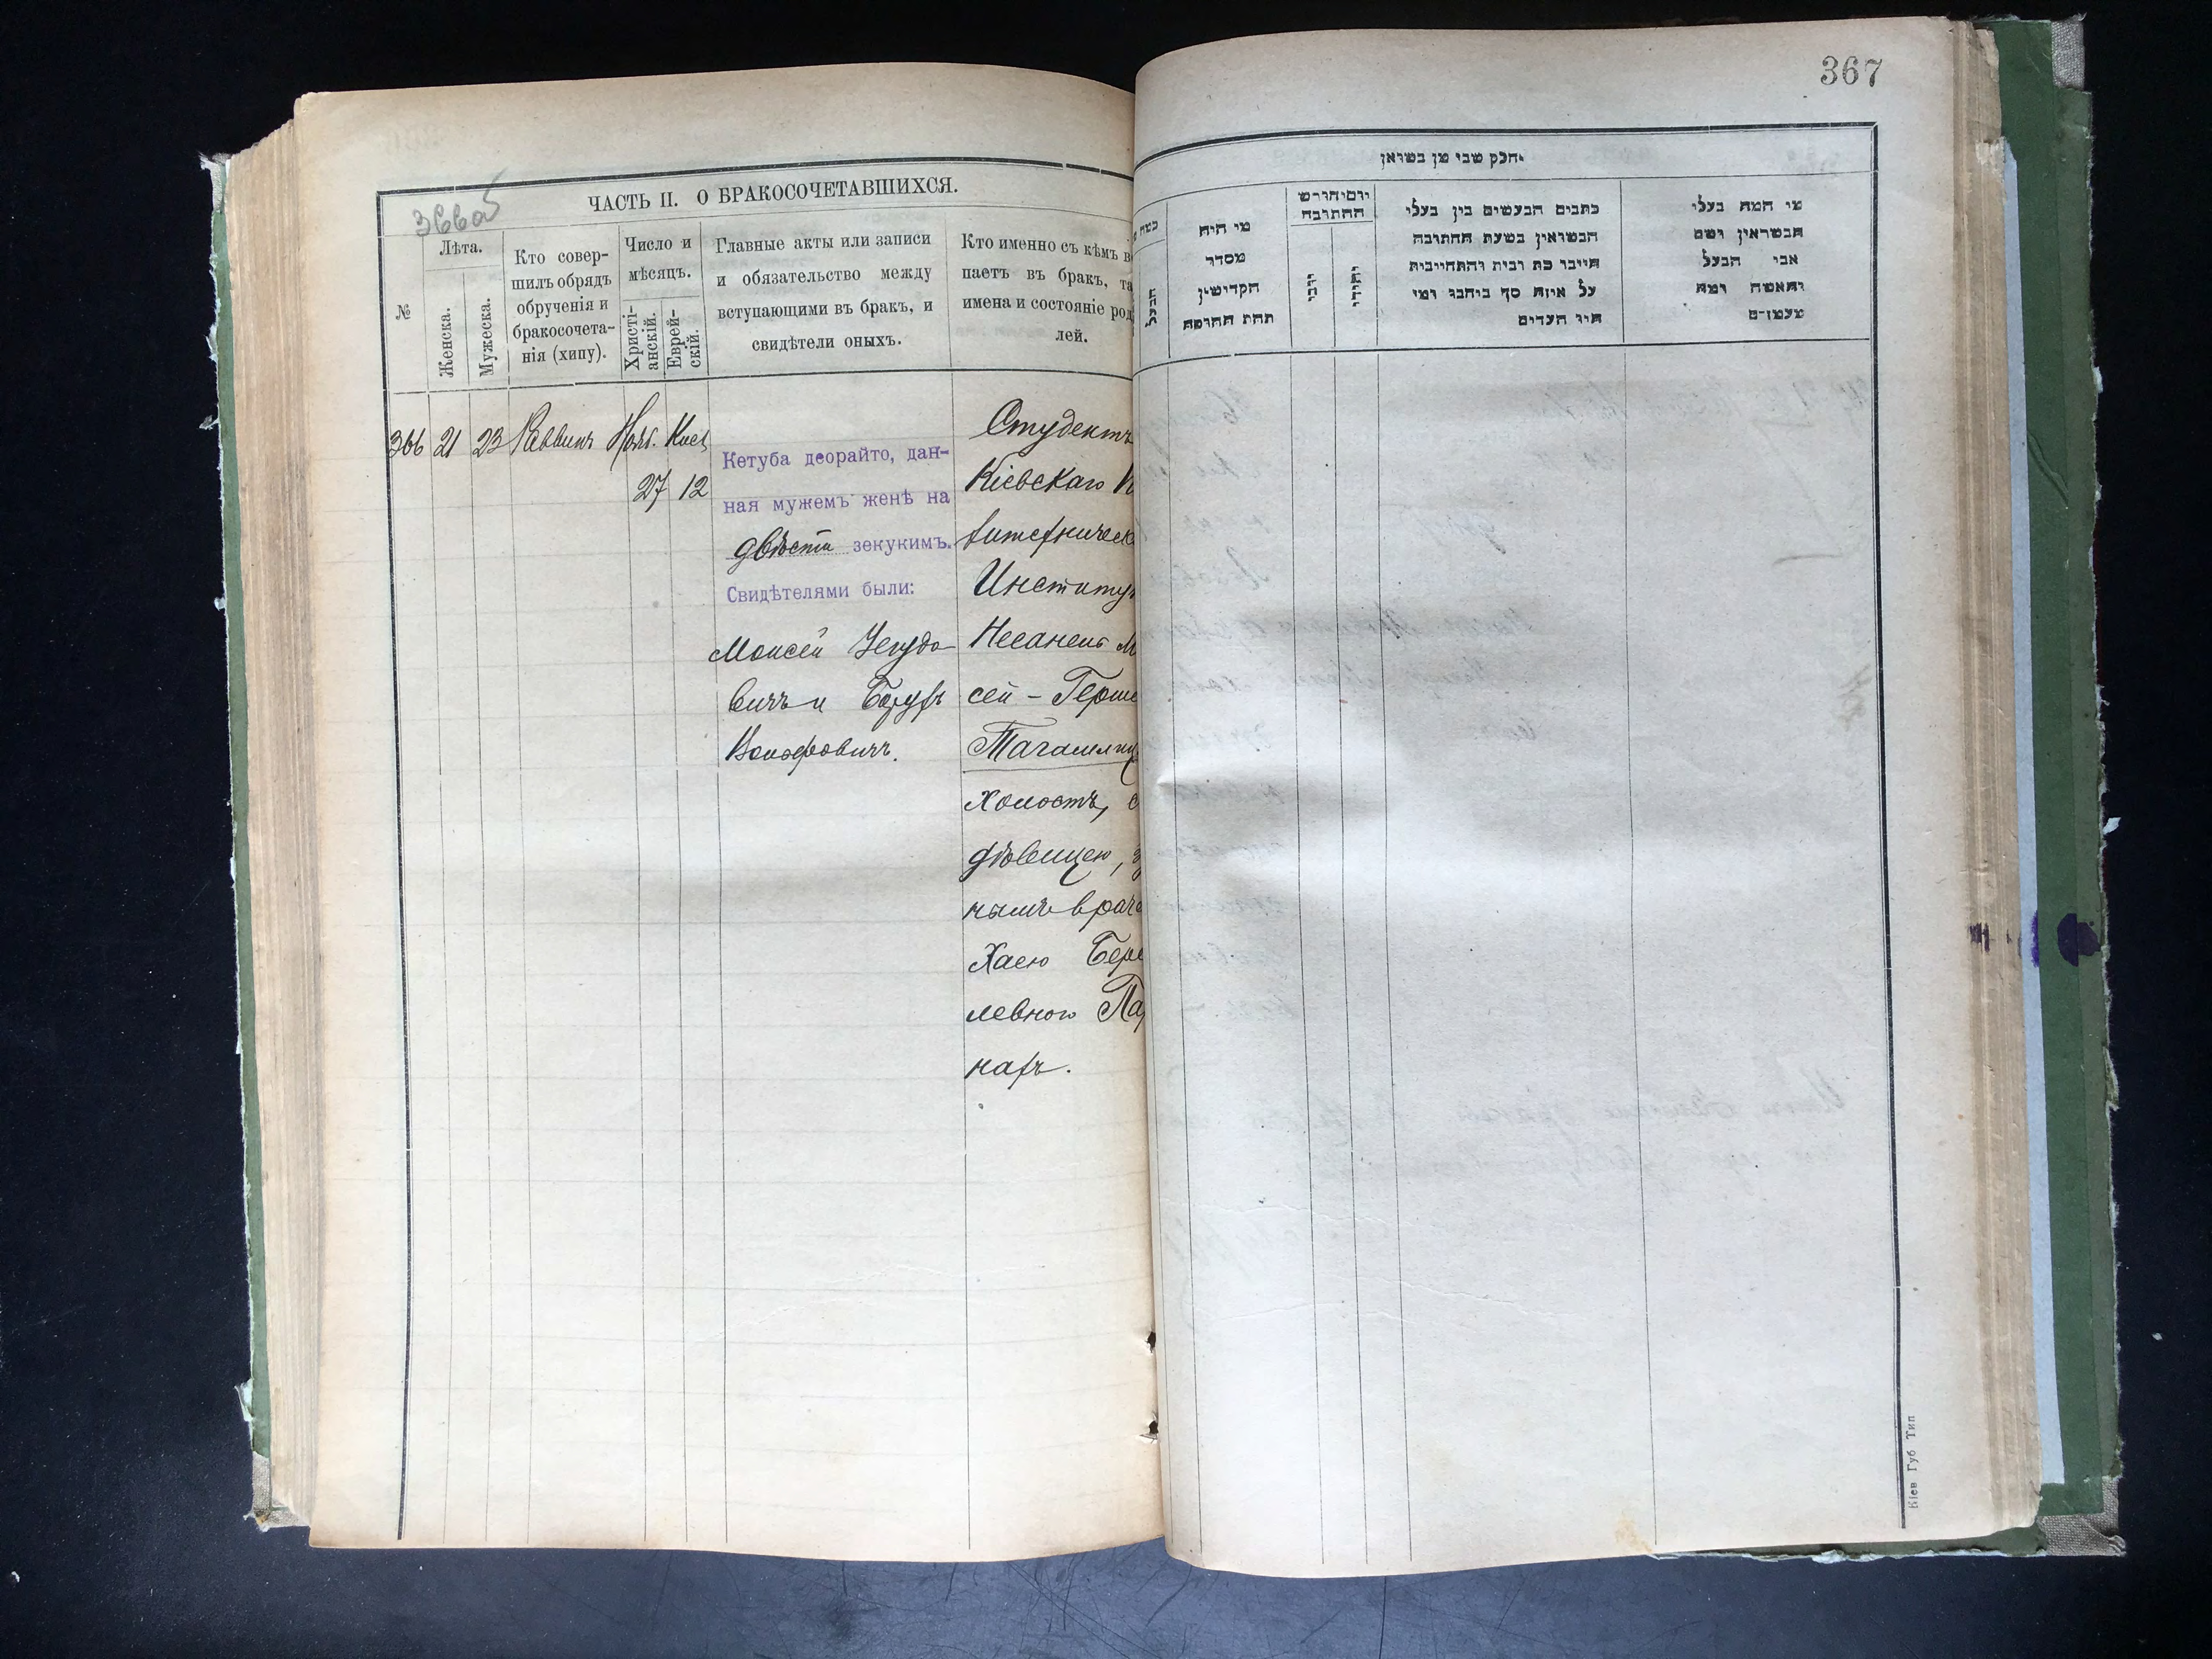 366об
ЧАСТЬ II. О БРАКОСОЧЕТАВШИХСЯ.
№
Лѣта.
Женска.
Мужеска.
Кто совер-
шилъ обрядъ
обрученія и
бракосочета-
нія (хипу).
Число и
мѣсяцъ.
Христі-
анскій.
Еврей-
скій.
Главные акты или записи
и обязательство между
вступающими въ бракъ, и
свидѣтели оныхъ.
Кто именно съ кѣмъ в
паетъ въ бракъ, та
имена и состояніе род
лей.
366 21 23 Раввинъ Нояб. Кисл
27 12
Кетуба деорайто, дан-
ная мужемъ женѣ на
двѣсти зекукимъ.
Свидѣтелями были:
Моисей Іегудо
вичъ и Борухъ
Студентъ
Кіевскаго
Институт
сей - Герш
холостъ, с
дѣвицею,
нымъ врач
Хаею Бер
левною Па
нахъ.
367
חלק שני מן נשואין
הבעל
מי היה
מסדר
הקדושין
תחת החופה
יום וחודש
החתונה
יוני
יהודי
כתבים הנעשים בין בעלי
הנשואין בשעת החתונה
היינו כת ובית והתחייבות
על איזה סך ביחבו ומי
היו העדים
מי המה בעלי
הנשואין ושם
אבי הבעל
והאשה ומה
מעמדם
Кіев Губ Тип